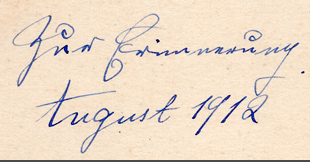 Zur Erinnerung.
August 1912